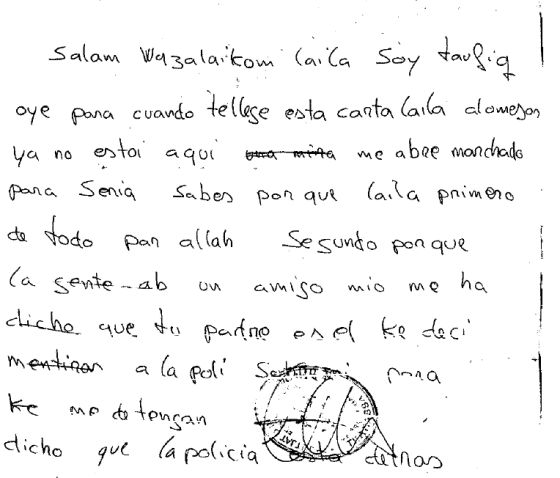 Salam Wazalaikom laila Soy taufiq
oye para cuando tellege esta carta laila alomejor
ya no estoi aqui una mira me abre marchado
para Seria Sabes por que laila primero
de todo por allah Segundo porque
la gente-ab un amigo mio me ha
dicho que tu padre es el ke deci
mentiras a la poli para
ke me detengan
dicho que la policia esta detras